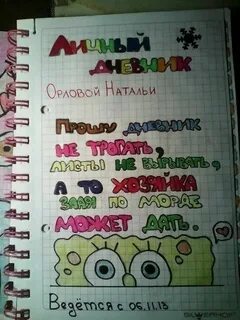 Личный
дневник
Орловой Натальи
Прошу дневник
не трогать,
листы не вырывать,
а то хозяйка
злая по морде
может дать.
Ведётся с 06.11.13